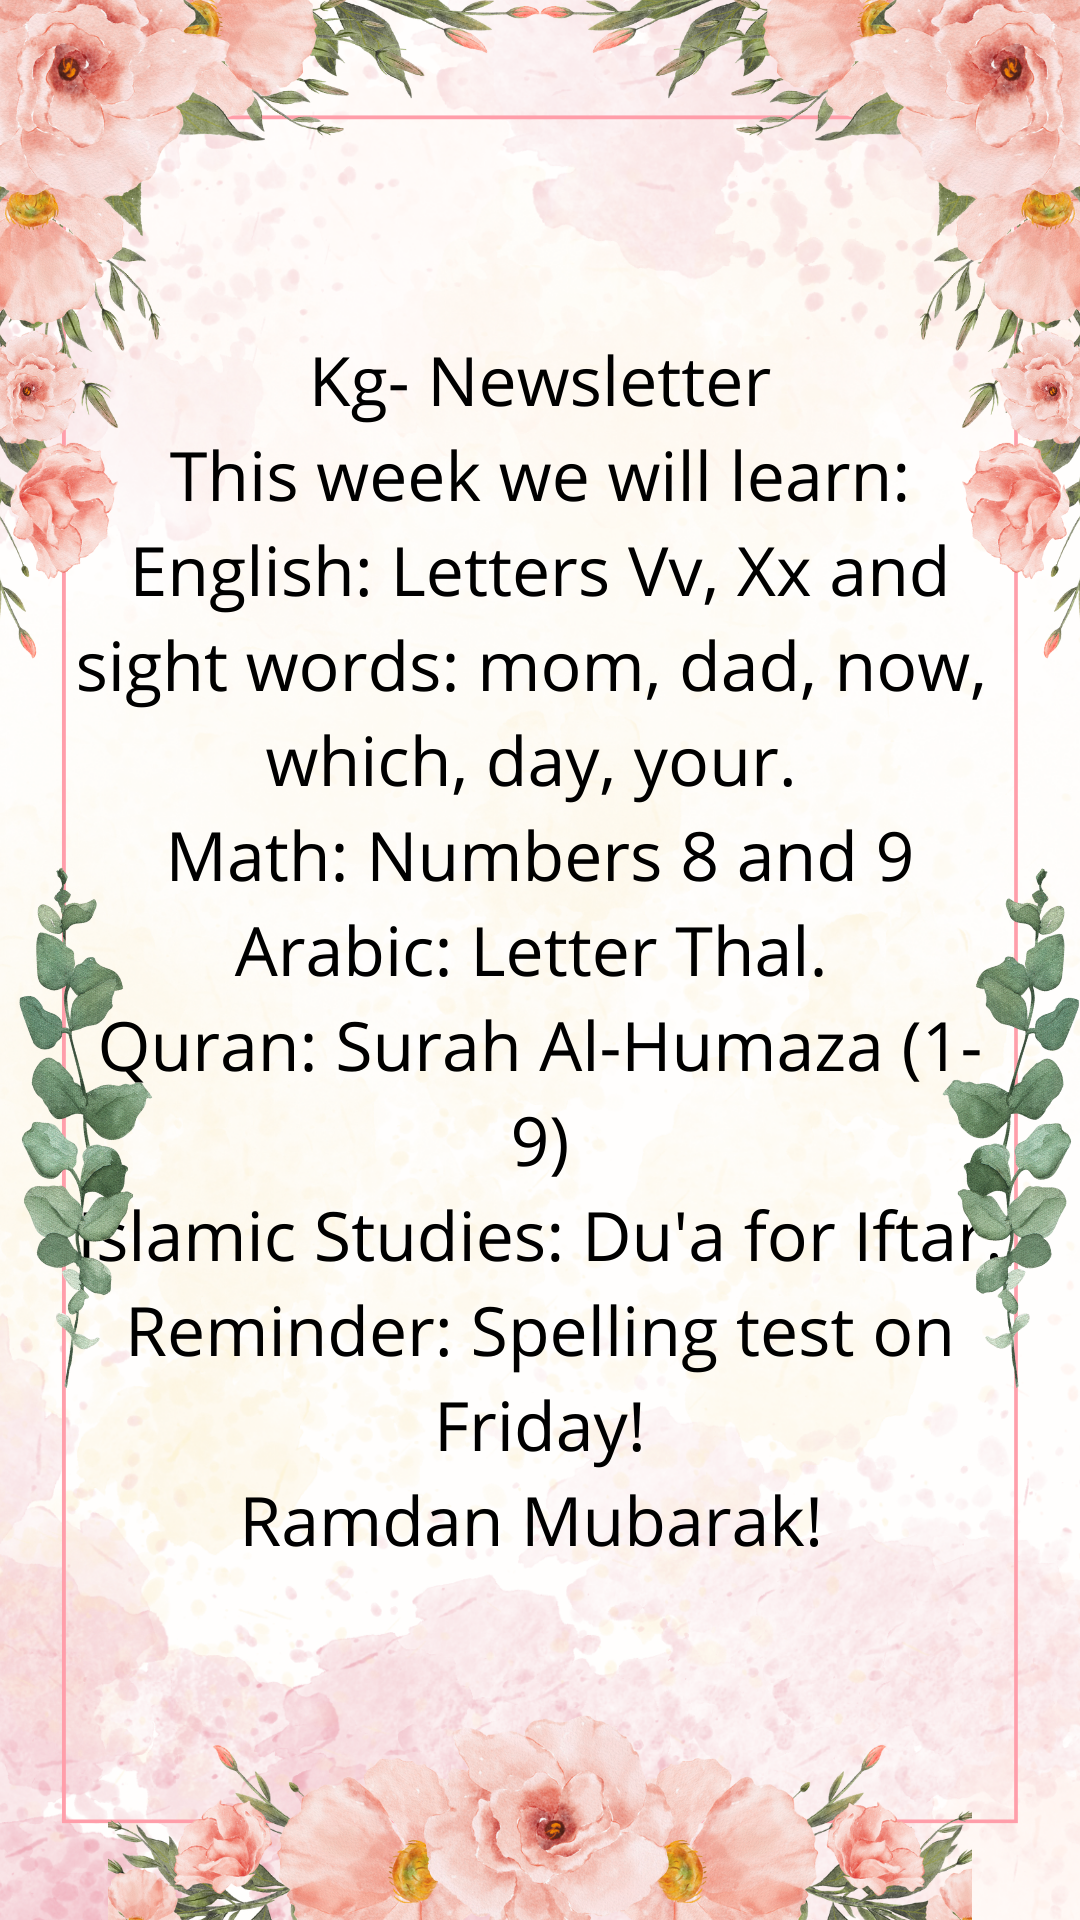 Kg- Newsletter
This week we will learn:
English: Letters Vv, Xx and
sight words: mom, dad, now,
which, day, your.
Math: Numbers 8 and 9
Arabic: Letter Thal.
Quran: Surah Al-Humaza (1-
9)
Islamic Studies: Du'a for Iftar.
Reminder: Spelling test on
Friday!
Ramdan Mubarak!